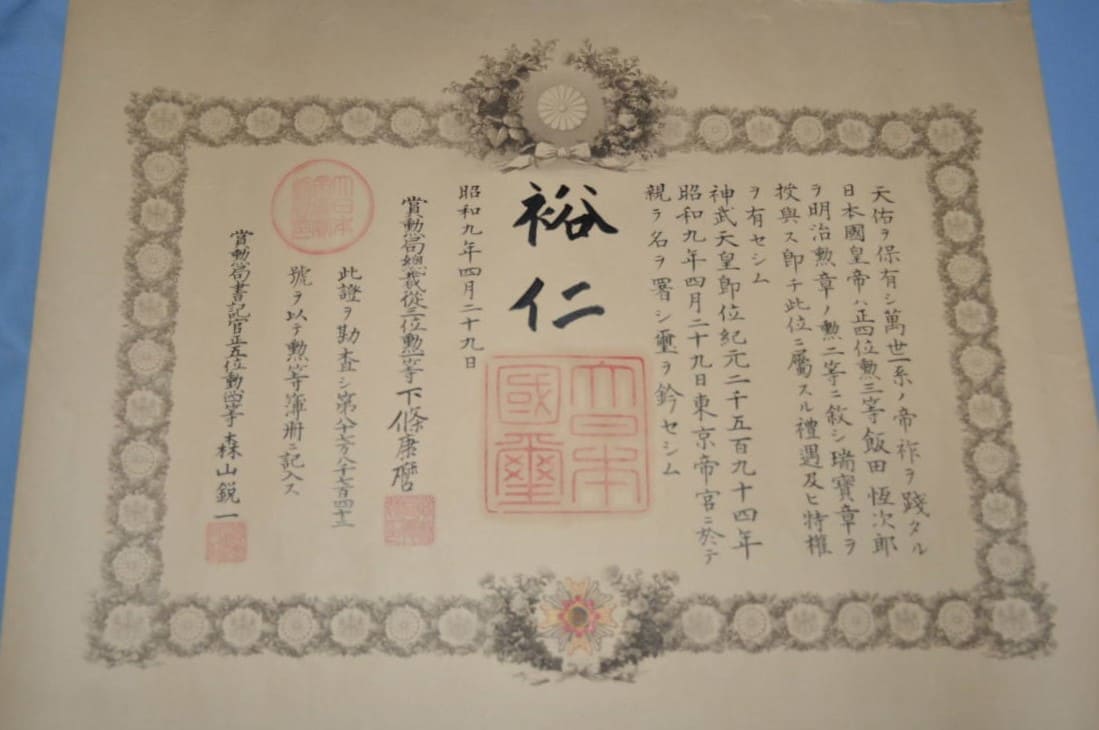 天佑ヲ保有シ萬世一系ノ帝祚ヲ踐タル
日本國皇帝ハ正四位勲三等飯田恆次郎
ヲ明治勲章ノ勲二等ニ敘シ瑞寶章ヲ
授與ス即チ此位ニ屬スル禮遇及ヒ特權
ヲ有セシム
神武天皇即位紀元二千五百九十四年
昭和九年四月二十九日東京帝宮ニ於テ
親ラ名ヲ署シ璽ヲ鈐セシム
裕仁
大日本
國璽
昭和九年四月二十九日
賞勲局總裁從三位勲一等下條康麿
此證ヲ勘査シ第八十七万八千七百四十三
號ヲ以テ勲等簿册ニ記入ス
賞勲局書記官正五位勲四等森山鋭一